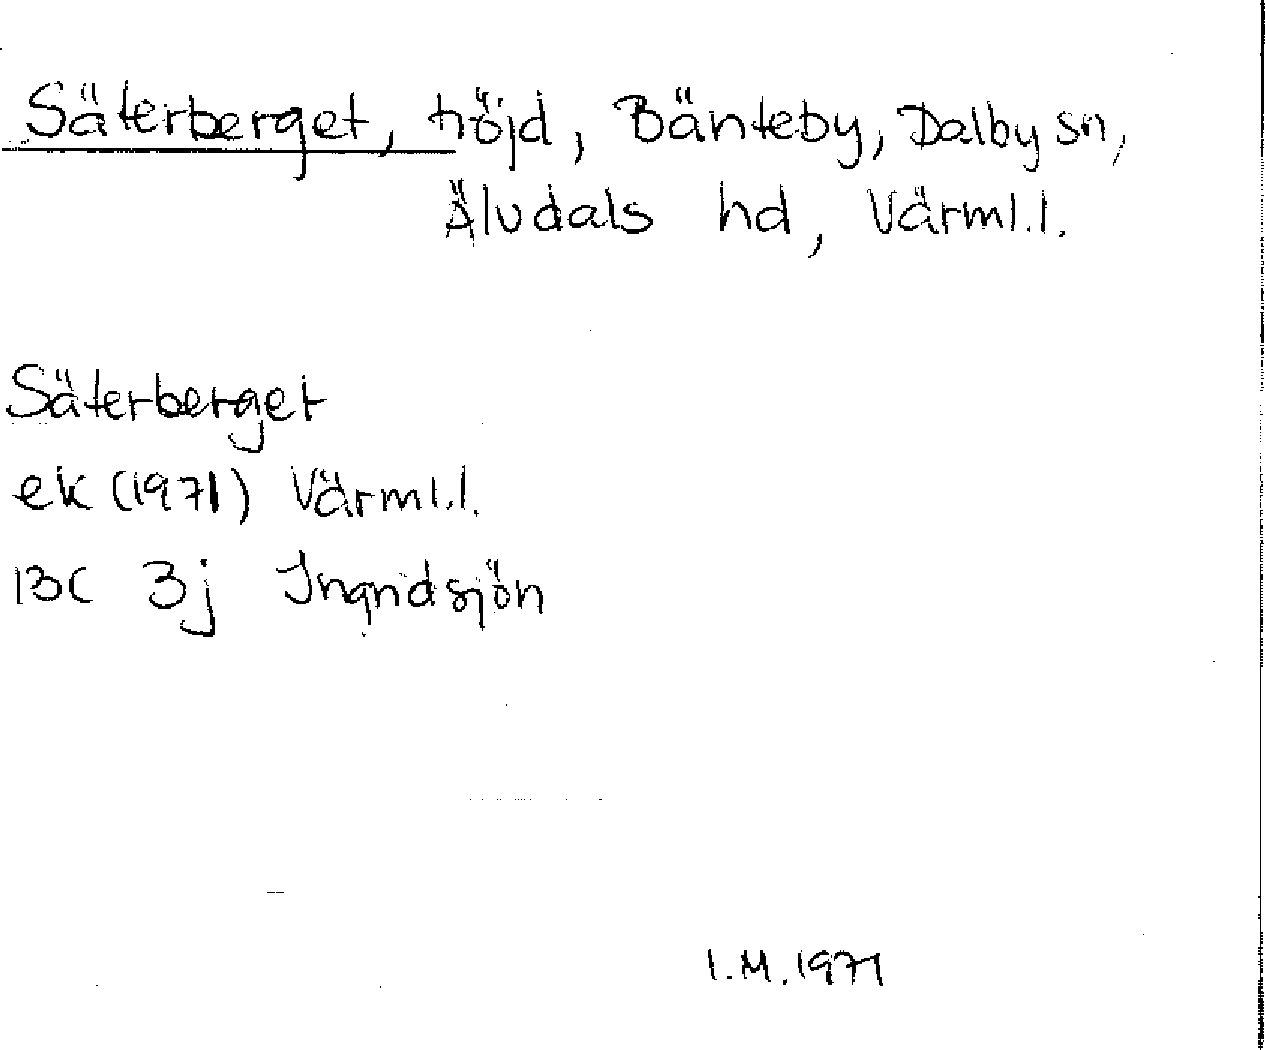 Säterberget, höjd, Bänteby, Dalby sn,
Älvdals hd, Värml.l.
Säterberget
ek (1971) Värml.l.
13C 3j Ingridsjön
I.M. 1971